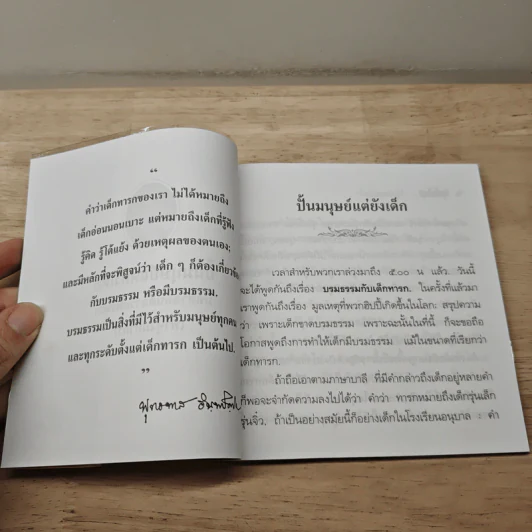 “
คำว่าเด็กทารกของเรา ไม่ได้หมายถึง
เด็กอ่อนนอนเบาะ แต่หมายถึงเด็กที่รู้ฟัง
รู้คิด รู้โต้แย้ง ด้วยเหตุผลของตนเอง;
และมีหลักที่จะพิสูจน์ว่า เด็ก ๆ ก็ต้องเกี่ยวข้อง
กับบรมธรรม หรือมีบรมธรรม.
บรมธรรมเป็นสิ่งที่มีไว้สำหรับมนุษย์ทุกคน
และทุกระดับตั้งแต่เด็กทารก เป็นต้นไป.
”
พุทธทาส อินทปัญโญ
ปั้นมนุษย์แต่ยังเด็ก
เวลาสำหรับพวกเราล่วงมาถึง ๕.๐๐ น แล้ว. วันนี้
จะได้พูดกันถึงเรื่อง บรมธรรมกับเด็กทารก. ในครั้งที่แล้วมา
เราพูดกันถึงเรื่อง มูลเหตุที่พวกฮิปปี้เกิดขึ้นในโลก: สรุปความ
ว่า เพราะเด็กขาดบรมธรรม เพราะฉะนั้นในที่นี้ ก็จะขอถือ
โอกาสพูดถึงการทำให้เด็กมีบรมธรรม แม้ในขนาดที่เรียกว่า
เด็กทารก.
ถ้าถือเอาตามภาษาบาลี ที่มีคำกล่าวถึงเด็กอยู่หลายคำ
ก็พอจะจำกัดความลงไปได้ว่า คำว่า ทารกหมายถึงเด็กรุ่นเล็ก
รุ่นจิ๋ว, ถ้าเป็นอย่างสมัยนี้ก็อย่างเด็กในโรงเรียนอนุบาล ะ คำ